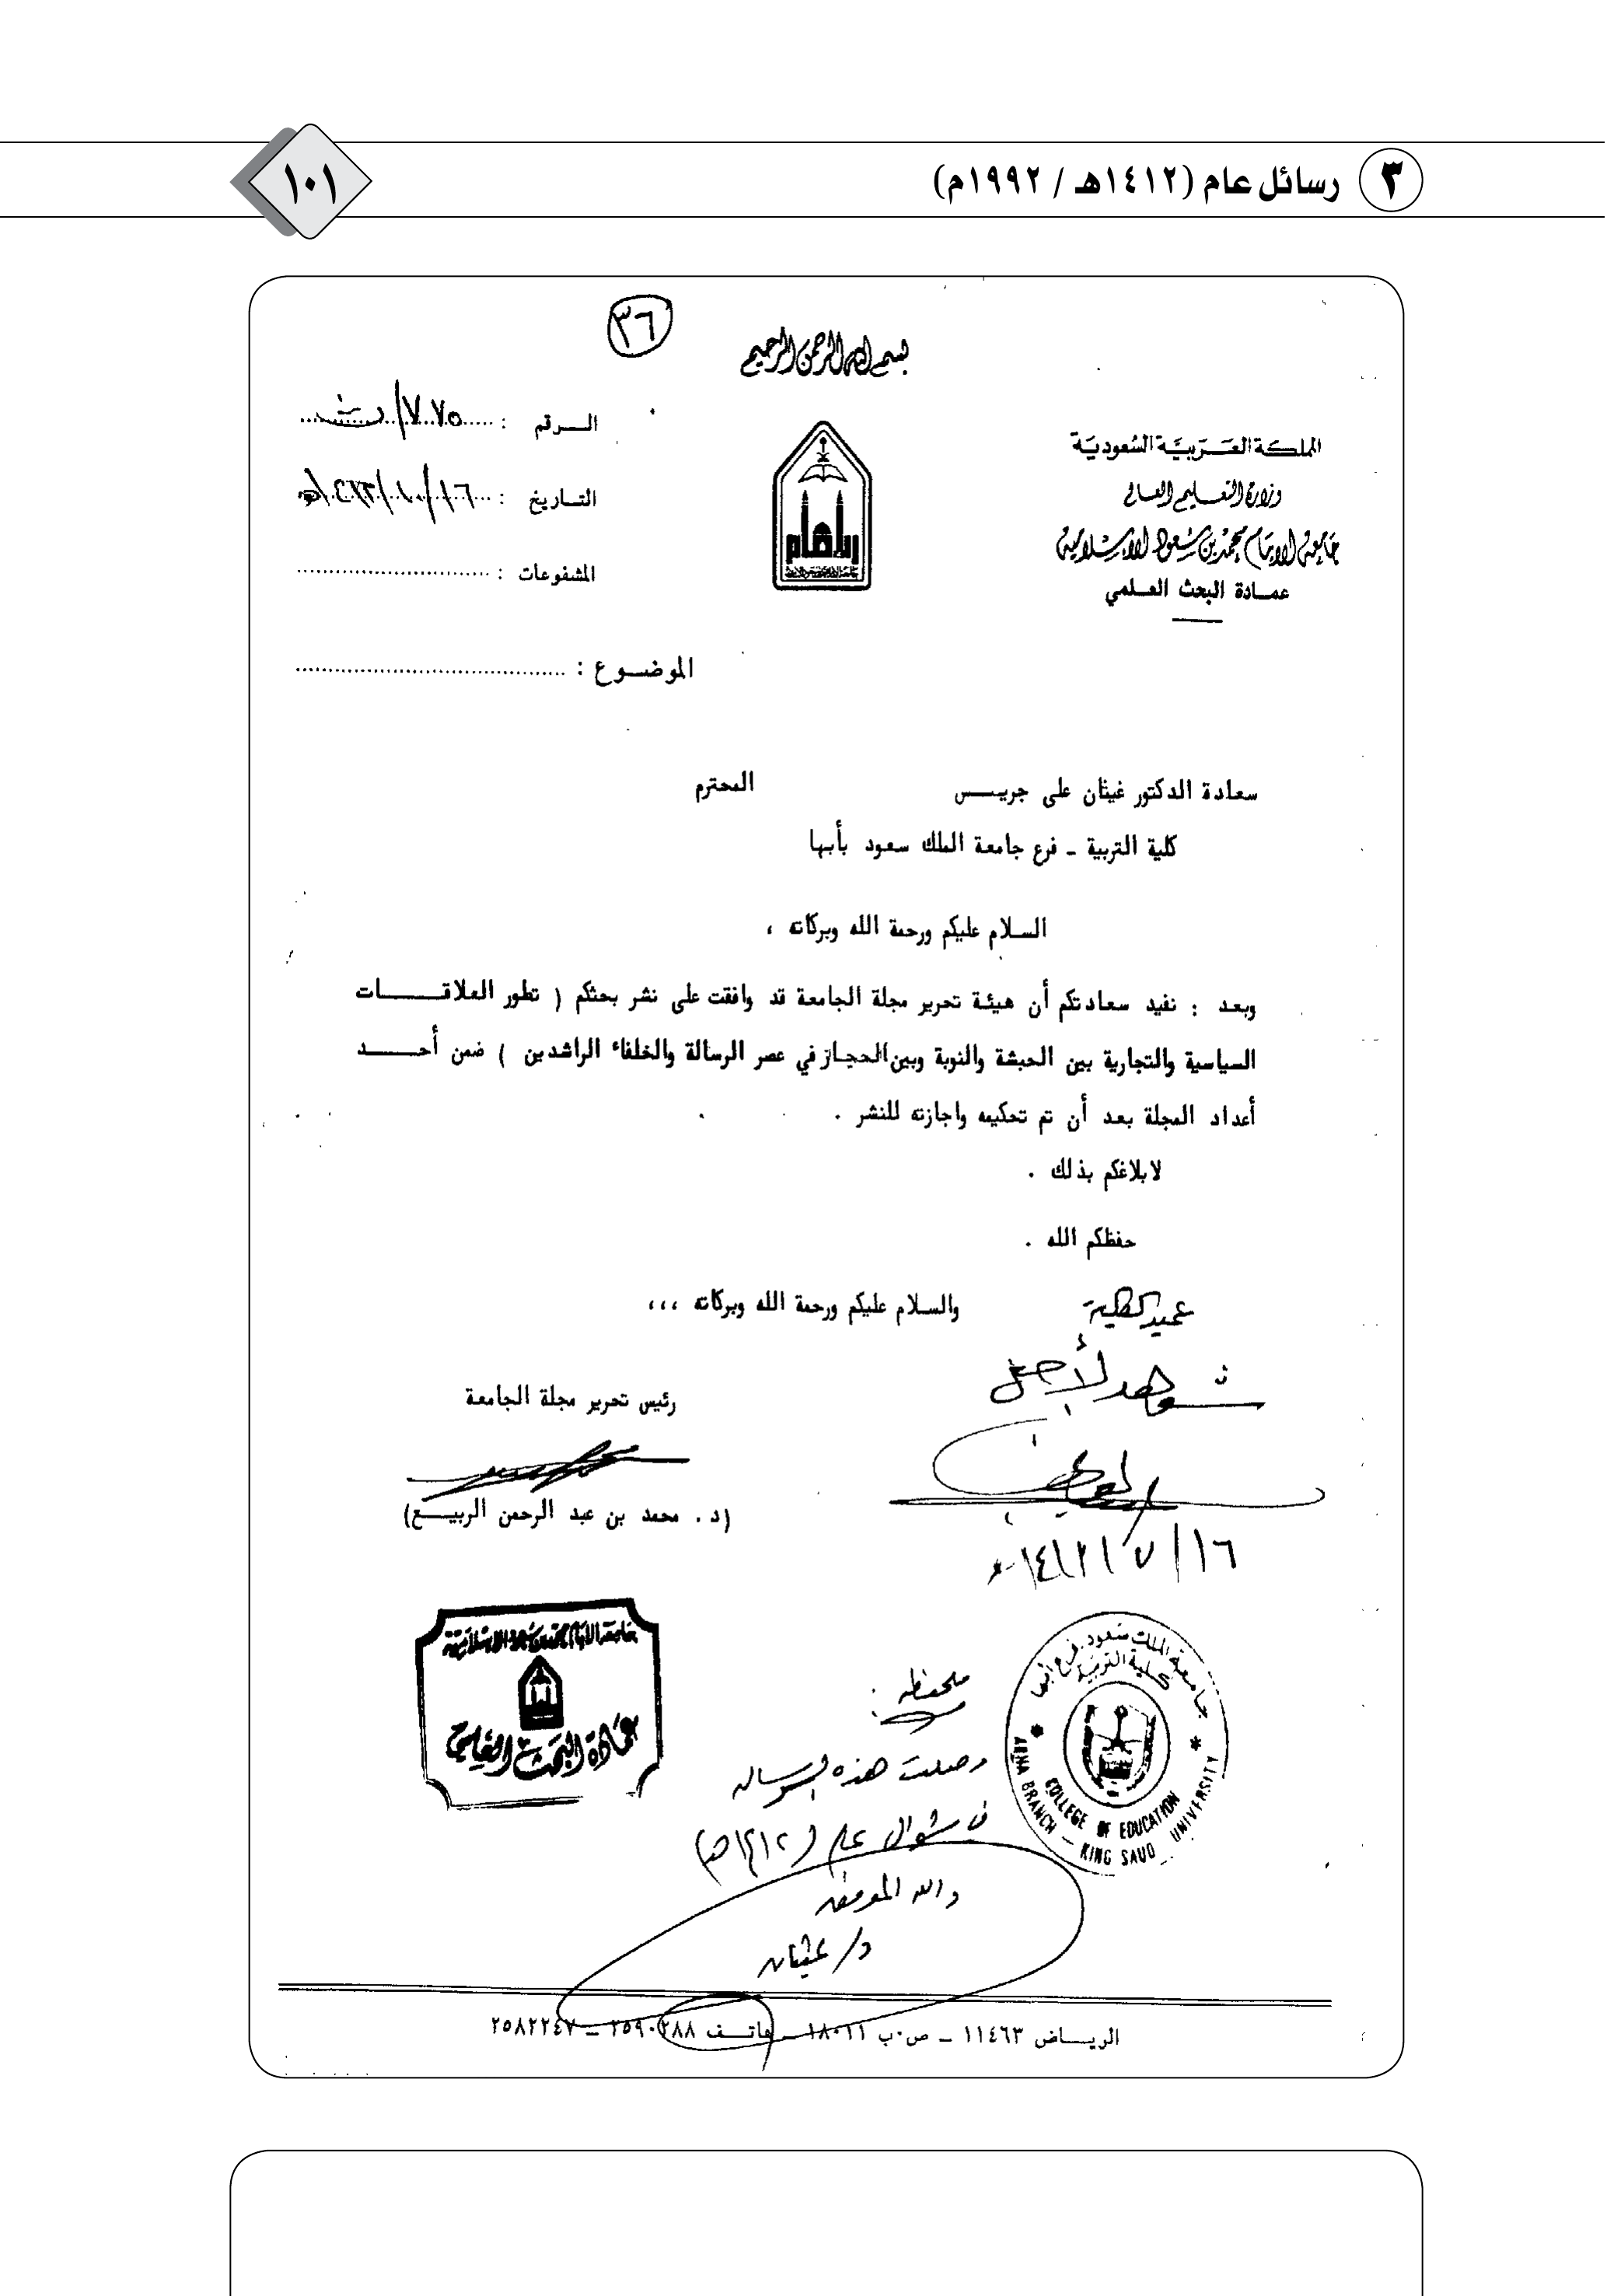 ٣ رسائل عام (١٤١٢هـ / ١٩٩٢م)
١٠١
٣٦
بسم الله الرحمن الرحيم
المملكة العربية السعودية
وزارة التعليم العالي
جامعة الإمام محمد بن سعود الإسلامية
عمادة البحث العلمي
الرقم : ٧٧٥/
التاريخ :
المشفوعات :
الموضوع :
سعادة الدكتور غيثان على جريس المحترم
كلية التربية ـ فرع جامعة الملك سعود بأبها
السلام عليكم ورحمة الله وبركاته ،
وبعد : نفيد سعادتكم أن هيئة تحرير مجلة الجامعة قد وافقت على نشر بحثكم ( تطور العلاقات
السياسية والتجارية بين الحبشة والنوبة وبين الحجاز في عصر الرسالة والخلفاء الراشدين ) ضمن أحد
أعداد المجلة بعد أن تم تحكيمه واجازته للنشر .
لابلاغكم بذلك .
حفظكم الله .
والسلام عليكم ورحمة الله وبركاته ،،،
عميد الكلية
شوهد الأصل
رئيس تحرير مجلة الجامعة
(د . محمد بن عبد الرحمن الربيع)
جامعة الإمام محمد بن سعود الإسلامية
عمادة البحث العلمي
جامعة الملك سعود . فرع أبها
كلية التربية
COLLEGE OF EDUCATION
ABHA BRANCH – KING SAUD UNIVERSITY
ملحظه :
وصلت هذه الرساله
في شوال عام (١٤١٢هـ)
والله الموفق
د/ غيثان
الرياض ١١٤٦٣ ـ ص.ب ١٨٠١١ ـ هاتف ٢٥٩٠٢٨٨ ـ ٢٥٨٢٢٤٧